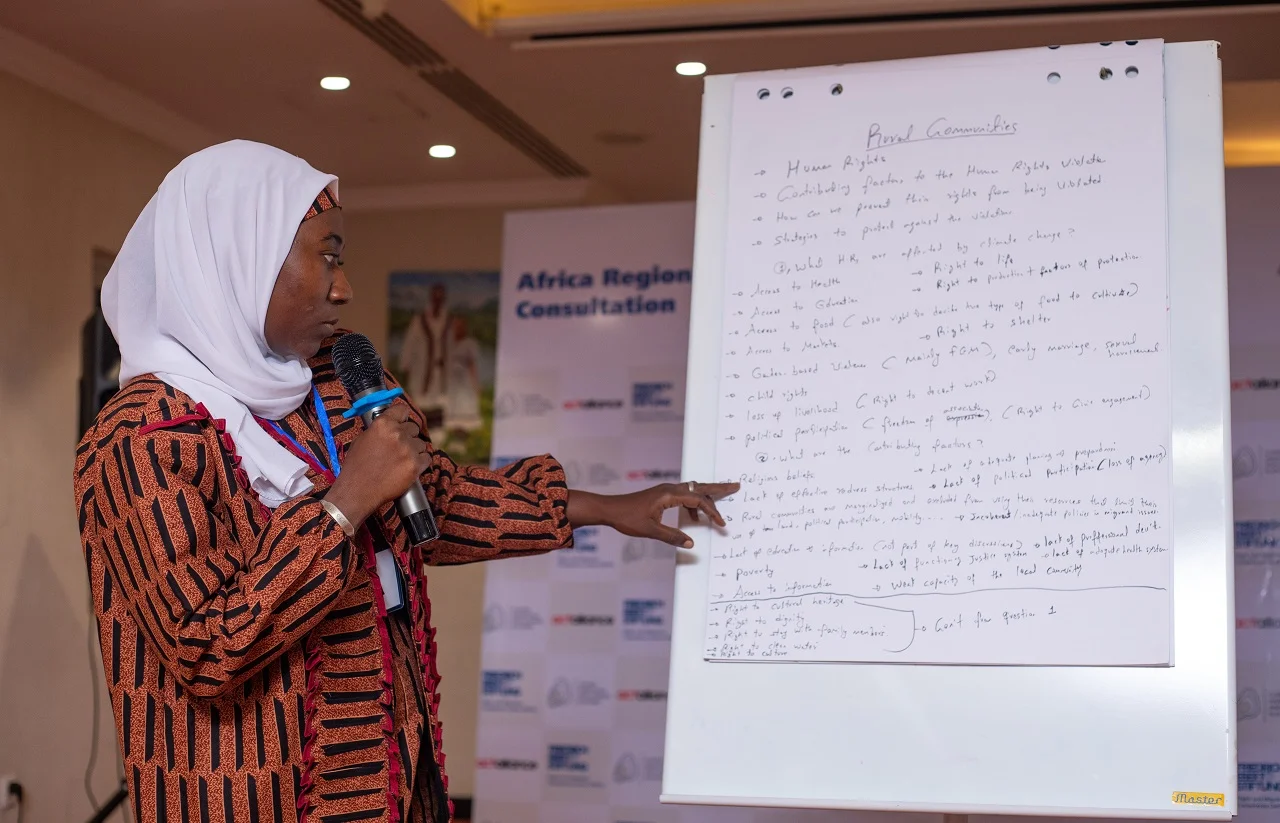 Africa Region
Consultation
Rural Communities
→ Human Rights
→ Contributing factors to the Human Rights Violate
→ How can we prevent their rights from being violated
→ Strategies to protect against the violations
①, What HRs are affected by climate change?
→ Access to Health → Right to life
→ Access to Education → Right to protection + factors of protection
→ Access to food (also right to decide type of food to cultivate)
→ Access to Markets → Right to shelter
→ Gender-based Violence (Mainly FGM), early marriage, sexual
→ child rights
→ loss of livelihood (Right to decent work)
→ political participation (freedom of), (Right to Civic engagement)
②, what are the Contributing factors?
→ Religious beliefs → Lack of adequate planning + preparations
→ Lack of effective redress structures → Lack of political participation (loss of agency)
→ Rural communities are marginalized and excluded from using their resources
land, political participation, mobility... policies in migrant issues
→ Lack of education + information (not part of key discussions) → lack of proffessional dev't.
→ Poverty → Lack of functioning justice system → lack of adequate health system
→ Access to information → Weak capacity of the local community
→ Right to cultural heritage
→ Right to dignity
→ Right to stay with family members → Con't from question 1
→ Right to clean water
→ Right to culture
actalliance
Master